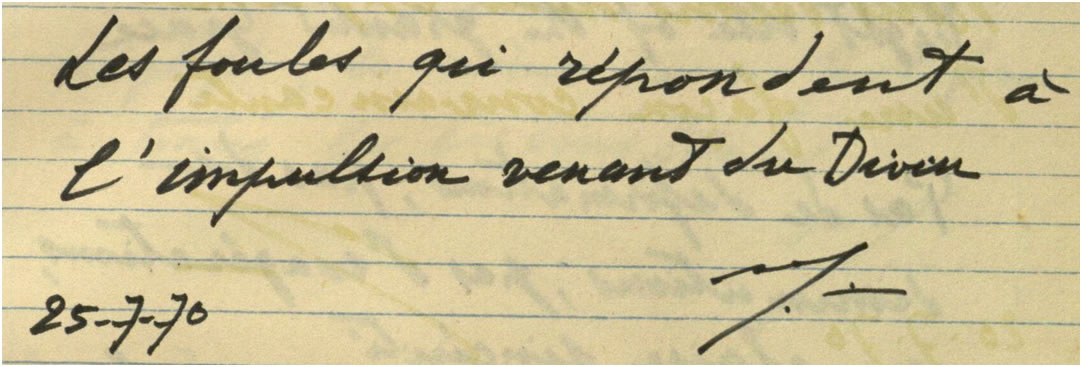 Les foules qui répondent à
l'impulsion venant du Divin
25-7-70